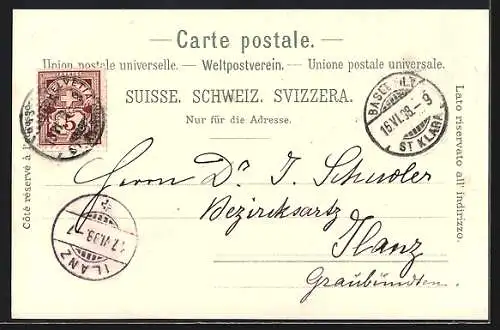 Carte postale.
Union postale universelle. — Weltpostverein. — Unione postale universale.
SUISSE. SCHWEIZ. SVIZZERA.
Nur für die Adresse.
Côté réservé à l'adresse.
Lato riservato all' indirizzo.
HELVETIA
5
BASEL
16.VI.98.-9
ST KLARA
Herrn Dr. J. Schuoler
Bezirksartz
Ilanz
Graubündten.
17.VI.98.-7
ILANZ